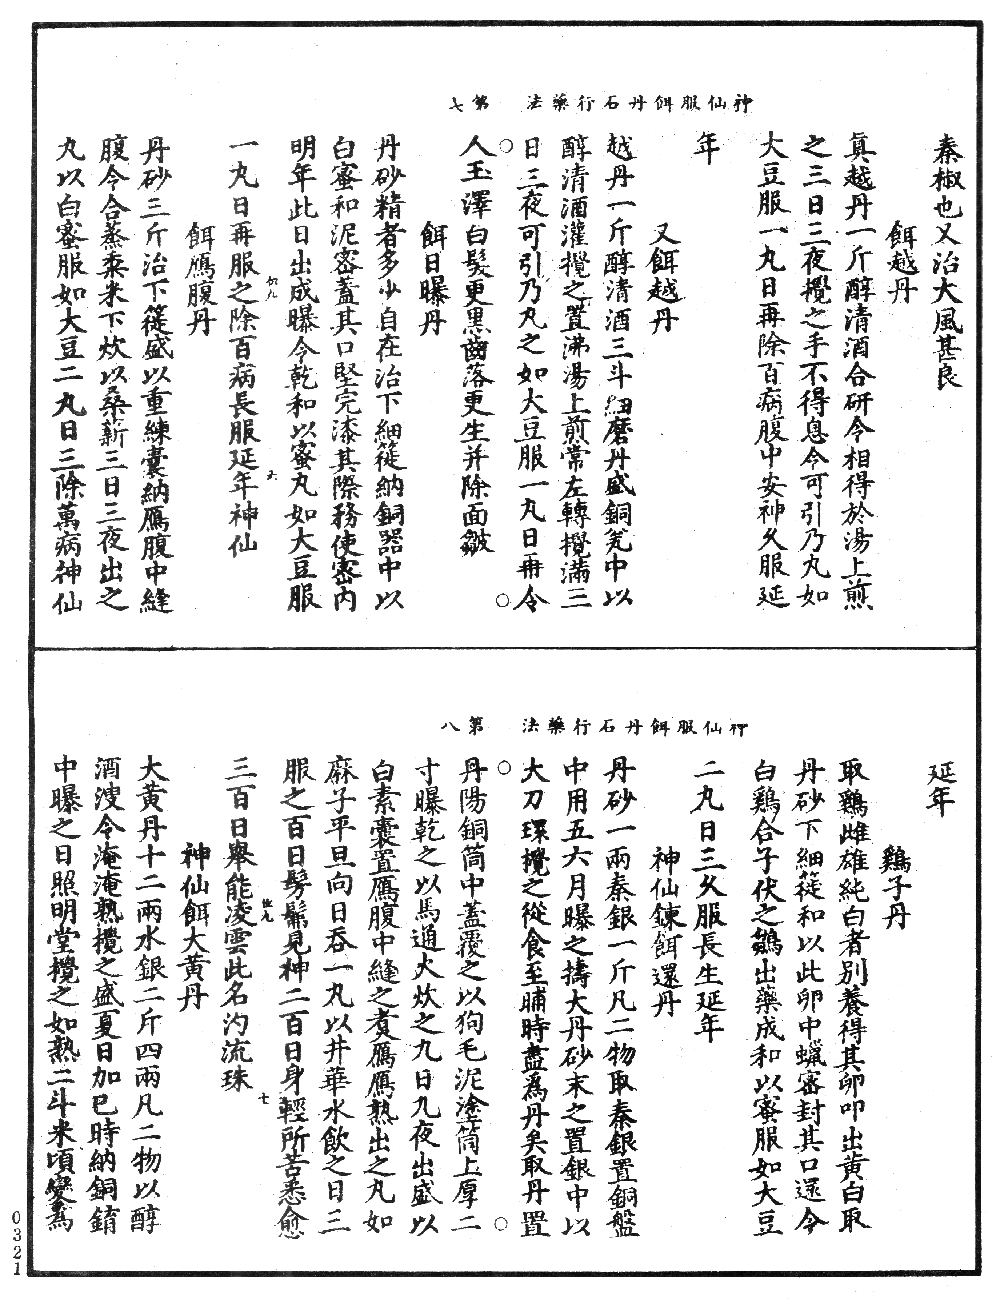 神仙服餌丹石行藥法　第七
秦椒也又治大風甚良
餌越丹
真越丹一斤醇清酒合研令相得於湯上煎
之三日三夜攪之手不得息令可引乃丸如
大豆服一丸日再除百病腹中安神久服延
年
又餌越丹
越丹一斤醇清酒三斗細磨丹盛銅瓮中以
醇清酒灌攪之置沸湯上煎常左轉攪滿三
日三夜可引乃丸之如大豆服一丸日再令
人玉澤白髮更黑齒落更生并除面皺
餌日曝丹
丹砂精者多少自在治下細簁納銅器中以
白蜜和泥密蓋其口堅完漆其際務使密內
明年此日出成曝令乾和以蜜丸如大豆服
一丸日再服之除百病長服延年神仙
餌鴈腹丹
丹砂三斤治下簁盛以重練囊納鴈腹中縫
腹令合蒸黍米下炊以桑薪三日三夜出之
丸以白蜜服如大豆二丸日三除萬病神仙
神仙服餌丹石行藥法　第八
延年
鷄子丹
取鷄雌雄純白者別養得其卵叩出黃白取
丹砂下細簁和以此卵中蠟密封其口還令
白鷄合子伏之鶵出藥成和以蜜服如大豆
二丸日三久服長生延年
神仙鍊餌還丹
丹砂一兩秦銀一斤凡二物取秦銀置銅盤
中用五六月曝之擣大丹砂末之置銀中以
大刀環攪之從食至晡時盡爲丹矣取丹置
丹陽銅筒中蓋覆之以狗毛泥塗筒上厚二
寸曝乾之以馬通火炊之九日九夜出盛以
白素囊置鴈腹中縫之煑鴈鴈熟出之丸如
麻子平旦向日吞一丸以井華水飲之日三
服之百日髣髴見神二百日身輕所苦悉愈
三百日舉能凌雲此名汋流珠
神仙餌大黃丹
大黃丹十二兩水銀二斤四兩凡二物以醇
酒溲令淹淹熟攪之盛夏日加巳時納銅銷
中曝之日照明堂攪之如熟二斗米頃變爲
0321